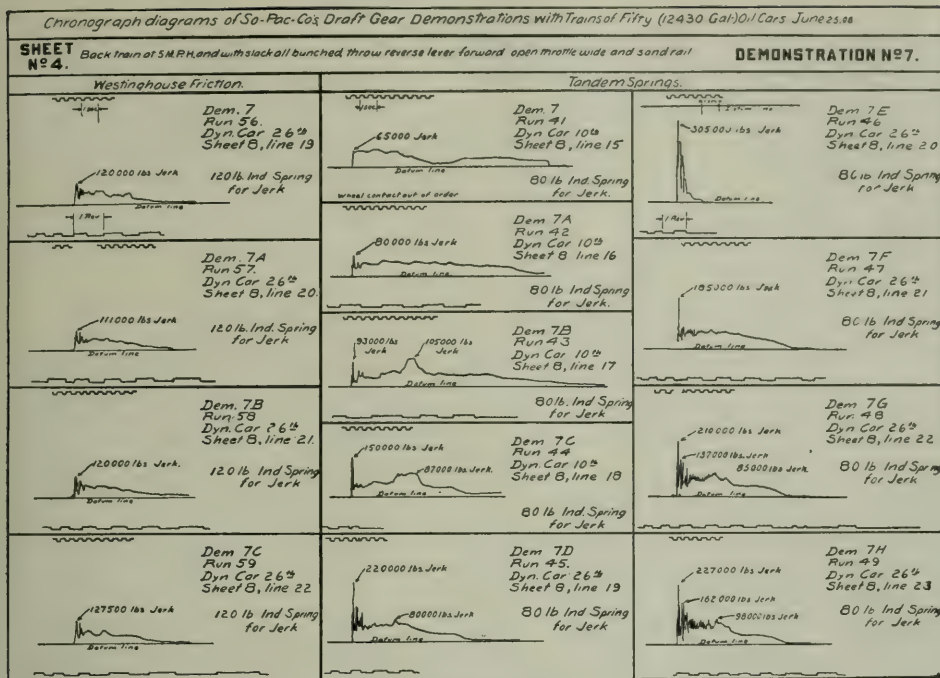 Chronograph diagrams of So-Pac-Co's Draft Gear Demonstrations with Trains of Fifty (12430 Gal) Oil Cars June 25.08
SHEET Nº 4.
Back train at 5 M.P.H. and with slack all bunched, throw reverse lever forward open throttle wide and sand rail
DEMONSTRATION Nº 7.
Westinghouse Friction.
Tandem Springs.
Dem. 7
Run 56.
Dyn. Car 26th
Sheet 8, line 19
120000 lbs Jerk
120 lb. Ind Spring
for Jerk
Datum line
1 Rev
Dem. 7A
Run 57.
Dyn Car 26th
Sheet 8, line 20.
111000 lbs Jerk
120 lb. Ind. Spring
for Jerk
Datum line
Dem. 7B
Run 58
Dyn. Car 26th
Sheet 8, line 21.
120000 lbs Jerk.
120 lb Ind Spring
for Jerk
Datum line
Dem 7C
Run 59
Dyn Car 26th
Sheet 8, line 22
127500 lbs Jerk
120 lb Ind Spring
for Jerk
Datum line
Dem. 7
Run 41
Dyn Car 10th
Sheet 8, line 15
65000 Jerk
Datum line
80 lb Ind. Spring
for Jerk.
wheel contact out of order
Dem 7A
Run 42
Dyn Car 10th
Sheet 8 line 16
80000 lbs Jerk
Datum line
80 lb Ind Spring
for Jerk.
Dem 7B
Run 43
Dyn Car 10th
Sheet 8, line 17
93000 lbs Jerk
105000 lbs Jerk
Datum line
80 lb. Ind Spring
for Jerk
Dem 7C
Run 44
Dyn Car 10th
Sheet 8, line 18
150000 lbs Jerk
87000 lbs Jerk.
Datum line
80 lb Ind Spring
for Jerk
Dem 7D
Run 45.
Dyn. Car 26th
Sheet 8, line 19
220000 lbs Jerk
80000 lbs Jerk
80 lb Ind Spring
for Jerk
Datum line
Dem 7E
Run 46
Dyn Car 26th
Sheet 8, line 20
305000 lbs Jerk
80 lb Ind Spring
for Jerk
Datum line
1 Rev
Dem 7F
Run 47
Dyn Car 26th
Sheet 8, line 21
185000 lbs Jerk
80 lb Ind Spring
for Jerk
Datum line
Dem 7G
Run 48
Dyn Car 26th
Sheet 8, line 22
210000 lbs Jerk
137000 lbs Jerk
85000 lbs Jerk
80 lb Ind Spring
for Jerk
Datum line
Dem 7H
Run 49
Dyn Car 26th
Sheet 8, line 23
227000 lbs Jerk
162000 lbs Jerk
98000 lbs Jerk
80 lb Ind Spring
for Jerk
Datum line